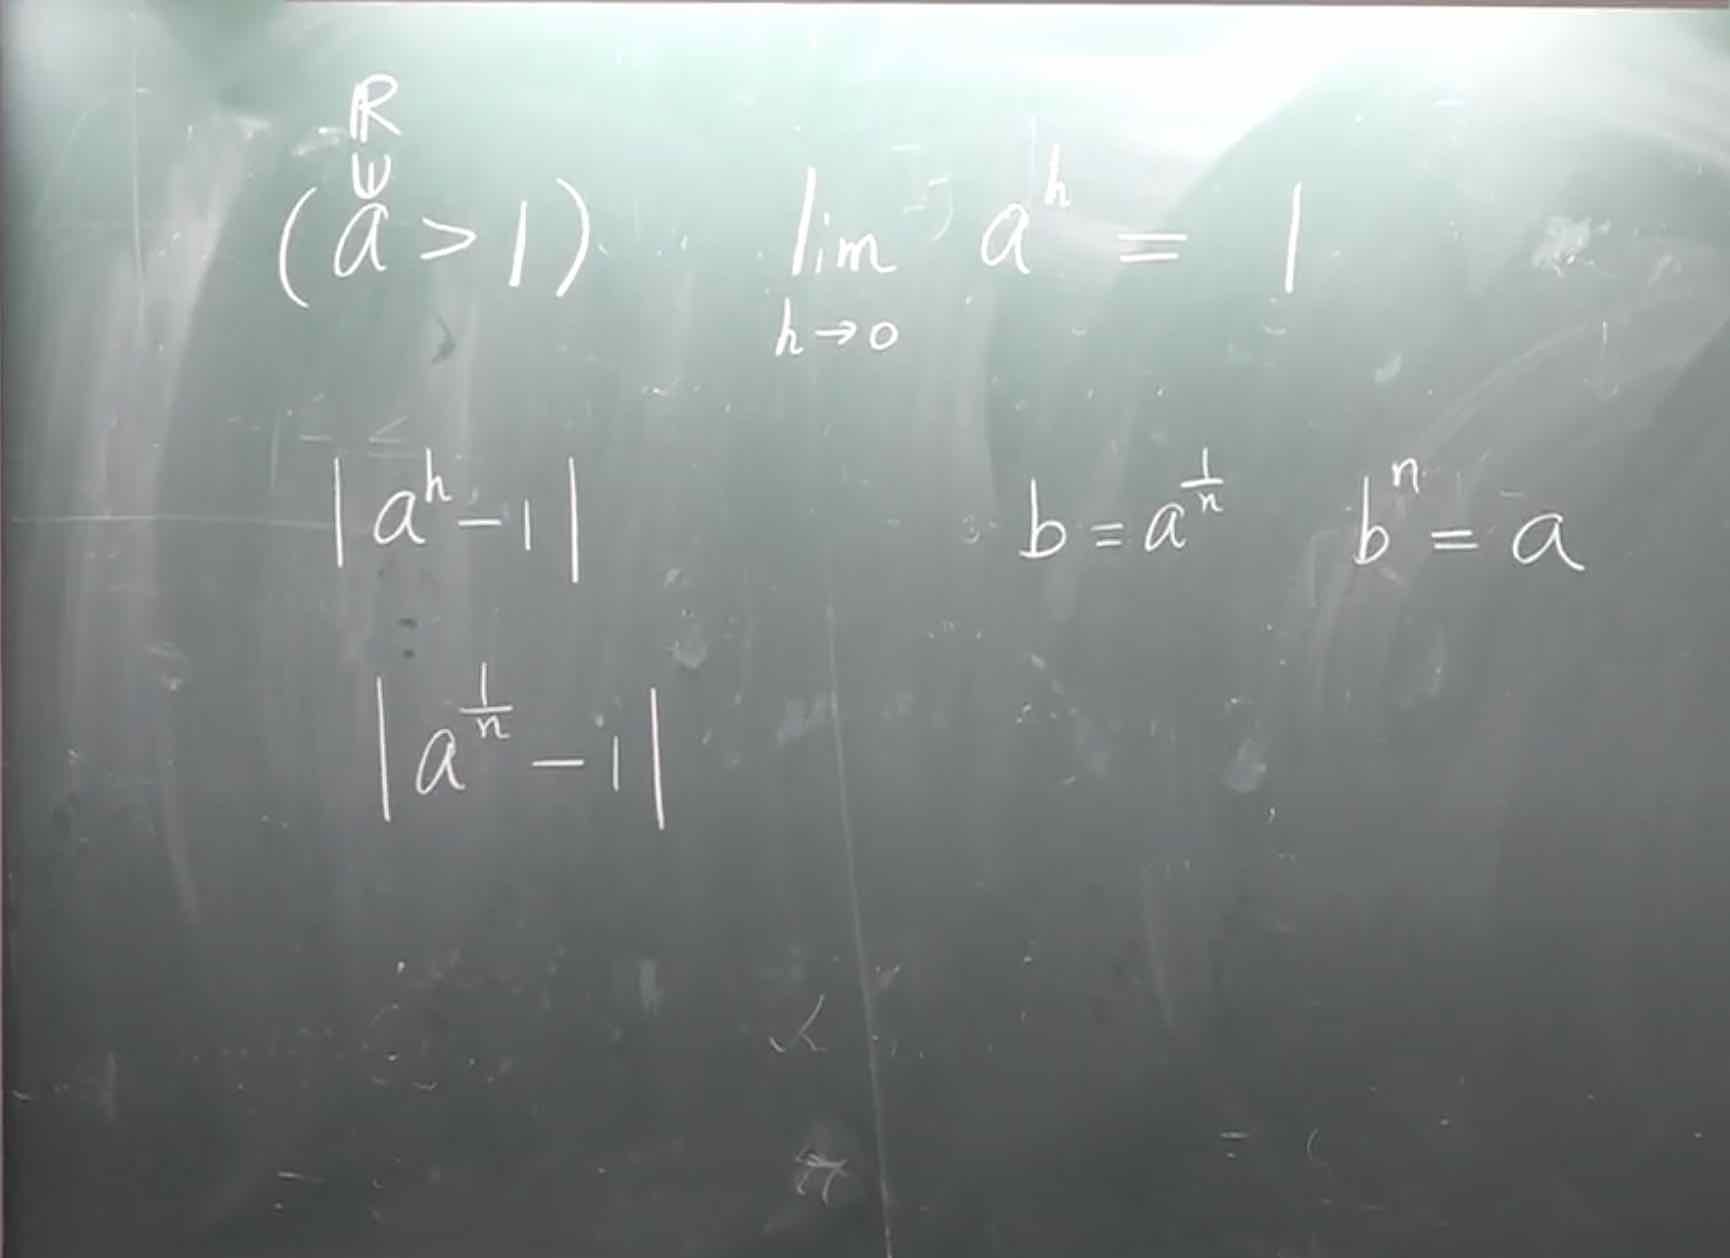 ℝ
∪
(a > 1) lim a^h = 1
h→0
|a^h − 1| b = a^{1/n} b^n = a
|a^{1/n} − 1|